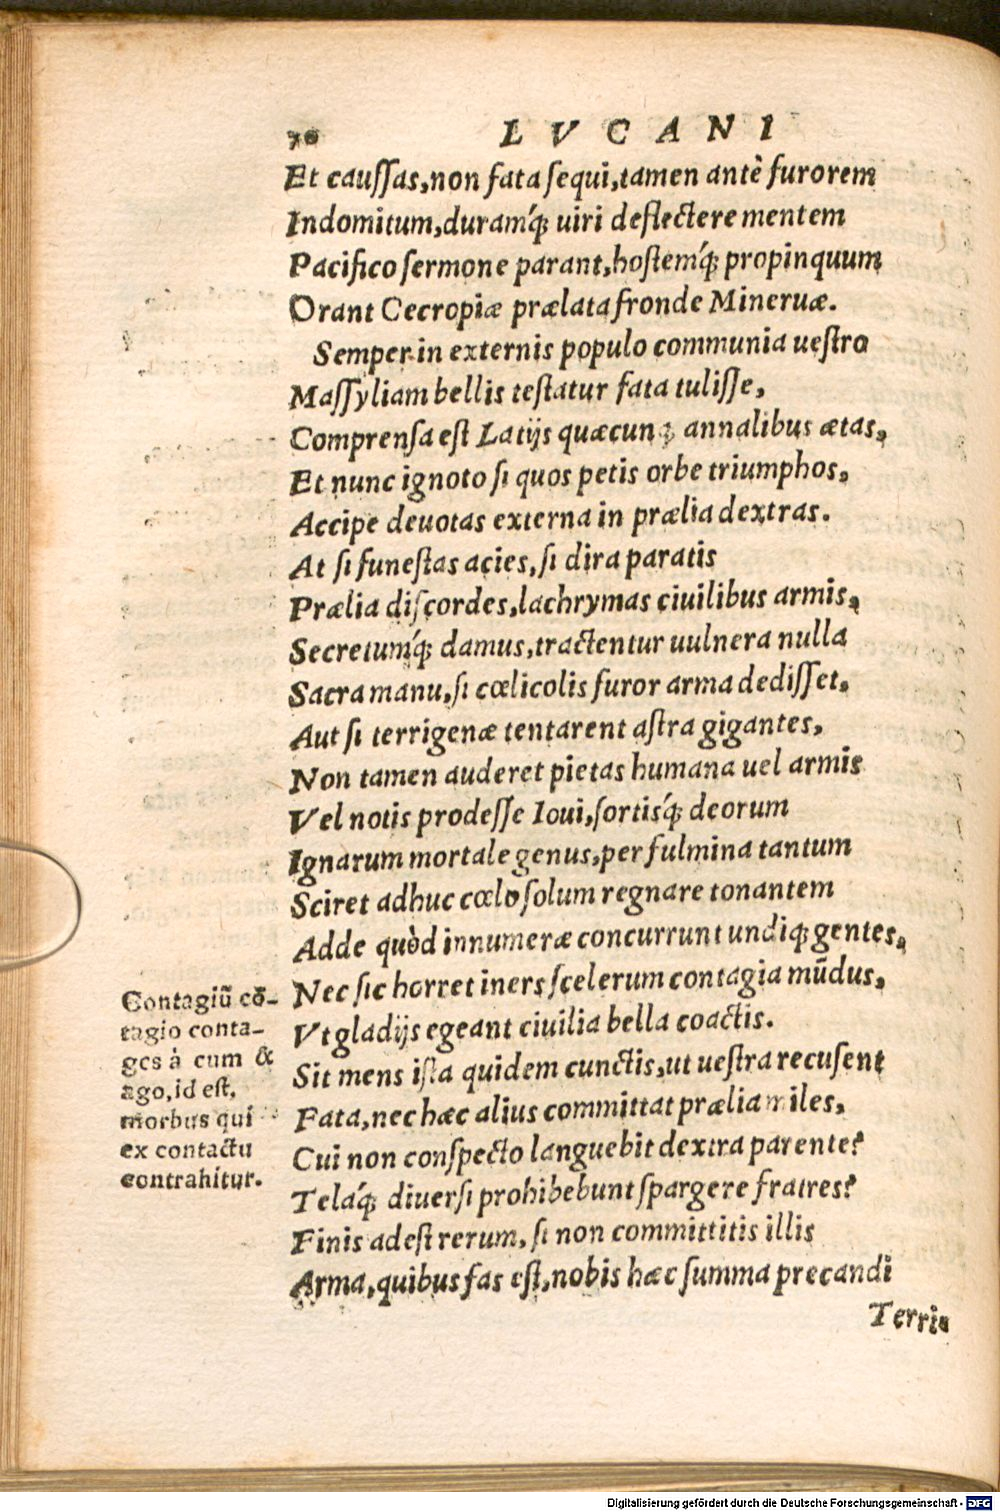 70 LVCANI
Et caussas, non fata sequi, tamen antè furorem
Indomitum, duramq́; uiri deflectere mentem
Pacifico sermone parant, hostemq́; propinquum
Orant Cecropiæ prælata fronde Mineruæ.
Semper in externis populo communia uestro
Massyliam bellis testatur fata tulisse,
Comprensa est Latijs quæcunq; annalibus ætas,
Et nunc ignoto si quos petis orbe triumphos,
Accipe deuotas externa in prælia dextras.
At si funestas acies, si dira paratis
Prælia discordes, lachrymas ciuilibus armis,
Secretumq́; damus, tractentur uulnera nulla
Sacra manu, si cœlicolis furor arma dedisset,
Aut si terrigenæ tentarent astra gigantes,
Non tamen auderet pietas humana uel armis
Vel notis prodesse Ioui, sortisq́; deorum
Ignarum mortale genus, per fulmina tantum
Sciret adhuc cœlo solum regnare tonantem
Adde quòd innumeræ concurrunt undiq; gentes,
Nec sic horret iners scelerum contagia mūdus,
Vt gladijs egeant ciuilia bella coactis.
Sit mens ista quidem cunctis, ut uestra recusent
Fata, nec hæc alius committat prælia miles,
Cui non conspecto languebit dextra parente?
Telaq́; diuersi prohibebunt spargere fratres?
Finis adest rerum, si non committitis illis
Arma, quibus fas est, nobis hæc summa precandi
Terris
Contagiū cō-
tagio conta-
ges à cum &
ago, id est,
morbus qui
ex contactu
contrahitur.
Digitalisierung gefördert durch die Deutsche Forschungsgemeinschaft - DFG